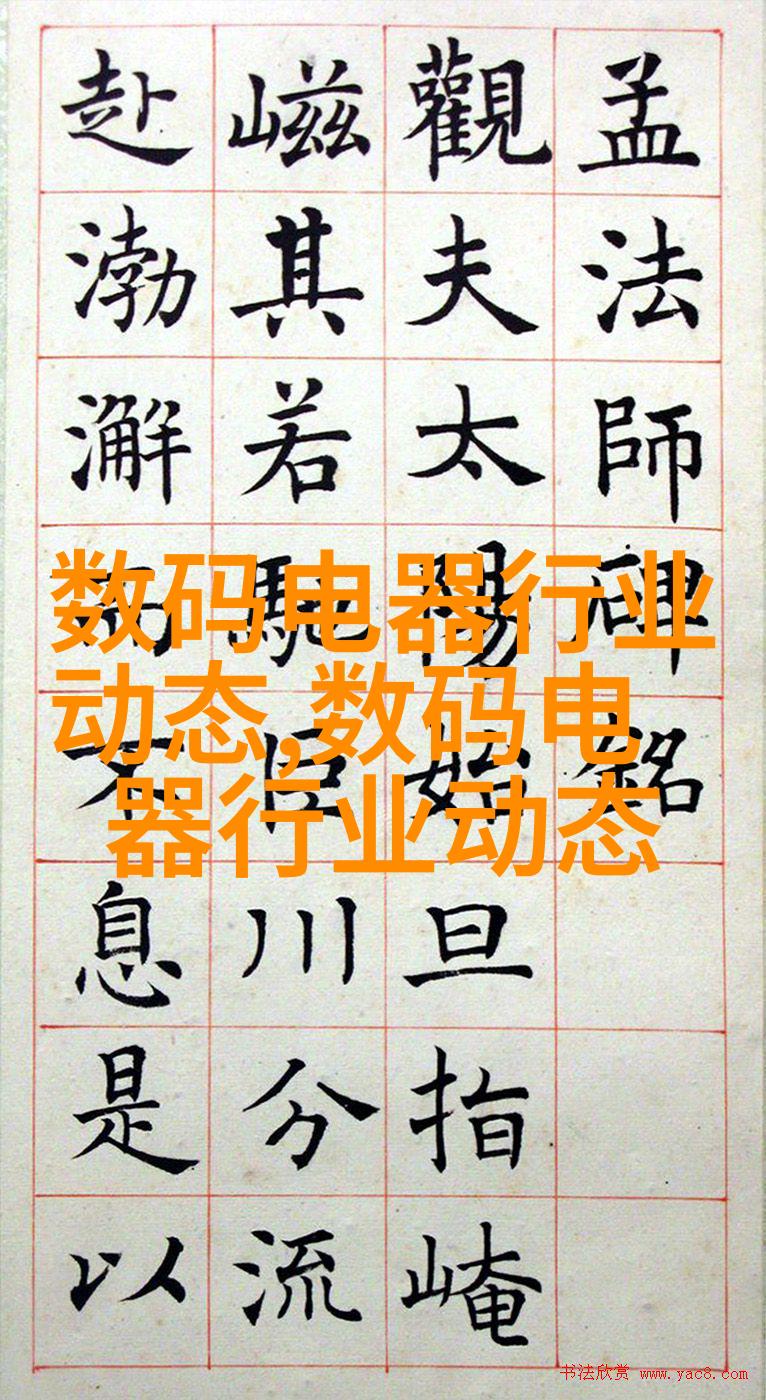 孟法師碑銘
觀夫太陽始旦指崦
嵫其若馳巨川分流
赴渤澥而不息是以
数码电器行业
动态,数码电
器行业动态
书法欣赏 www.yac8.com